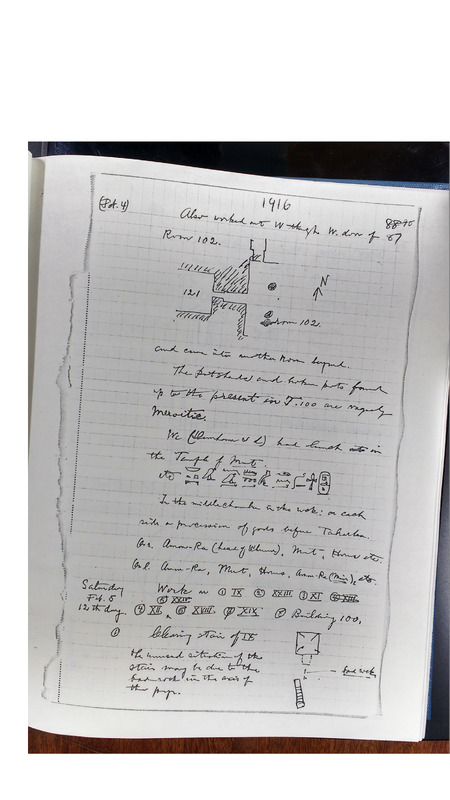 1916
(Feb. 4)
Also worked out W through W. door of
67
Room 102.
N
121
Room 102.
and came into another room beyond.
The potsherds and broken pots found
up to the present in T.100 are vaguely
Meroitic.
We had lunch in
the Temple of Mut
etc
In the middle chamber in the rock: on each
side a procession of gods before Taharka.
On r. Amon-Ra (head of Khnum), Mut, Horus etc.
On l. Amon-Ra, Mut, Horus, Amon-Ra (Min), etc.
Saturday
Feb. 5
12th day.
Work on ① IX ② XXIII ③ XI
④ XII, ⑥ XVIII ⑦ XIX ⑧ Building 100,
① Clearing stair of IX
the unusual situation of the
stair may be due to the
bad rock in the axis of
the pyr.
bad rock